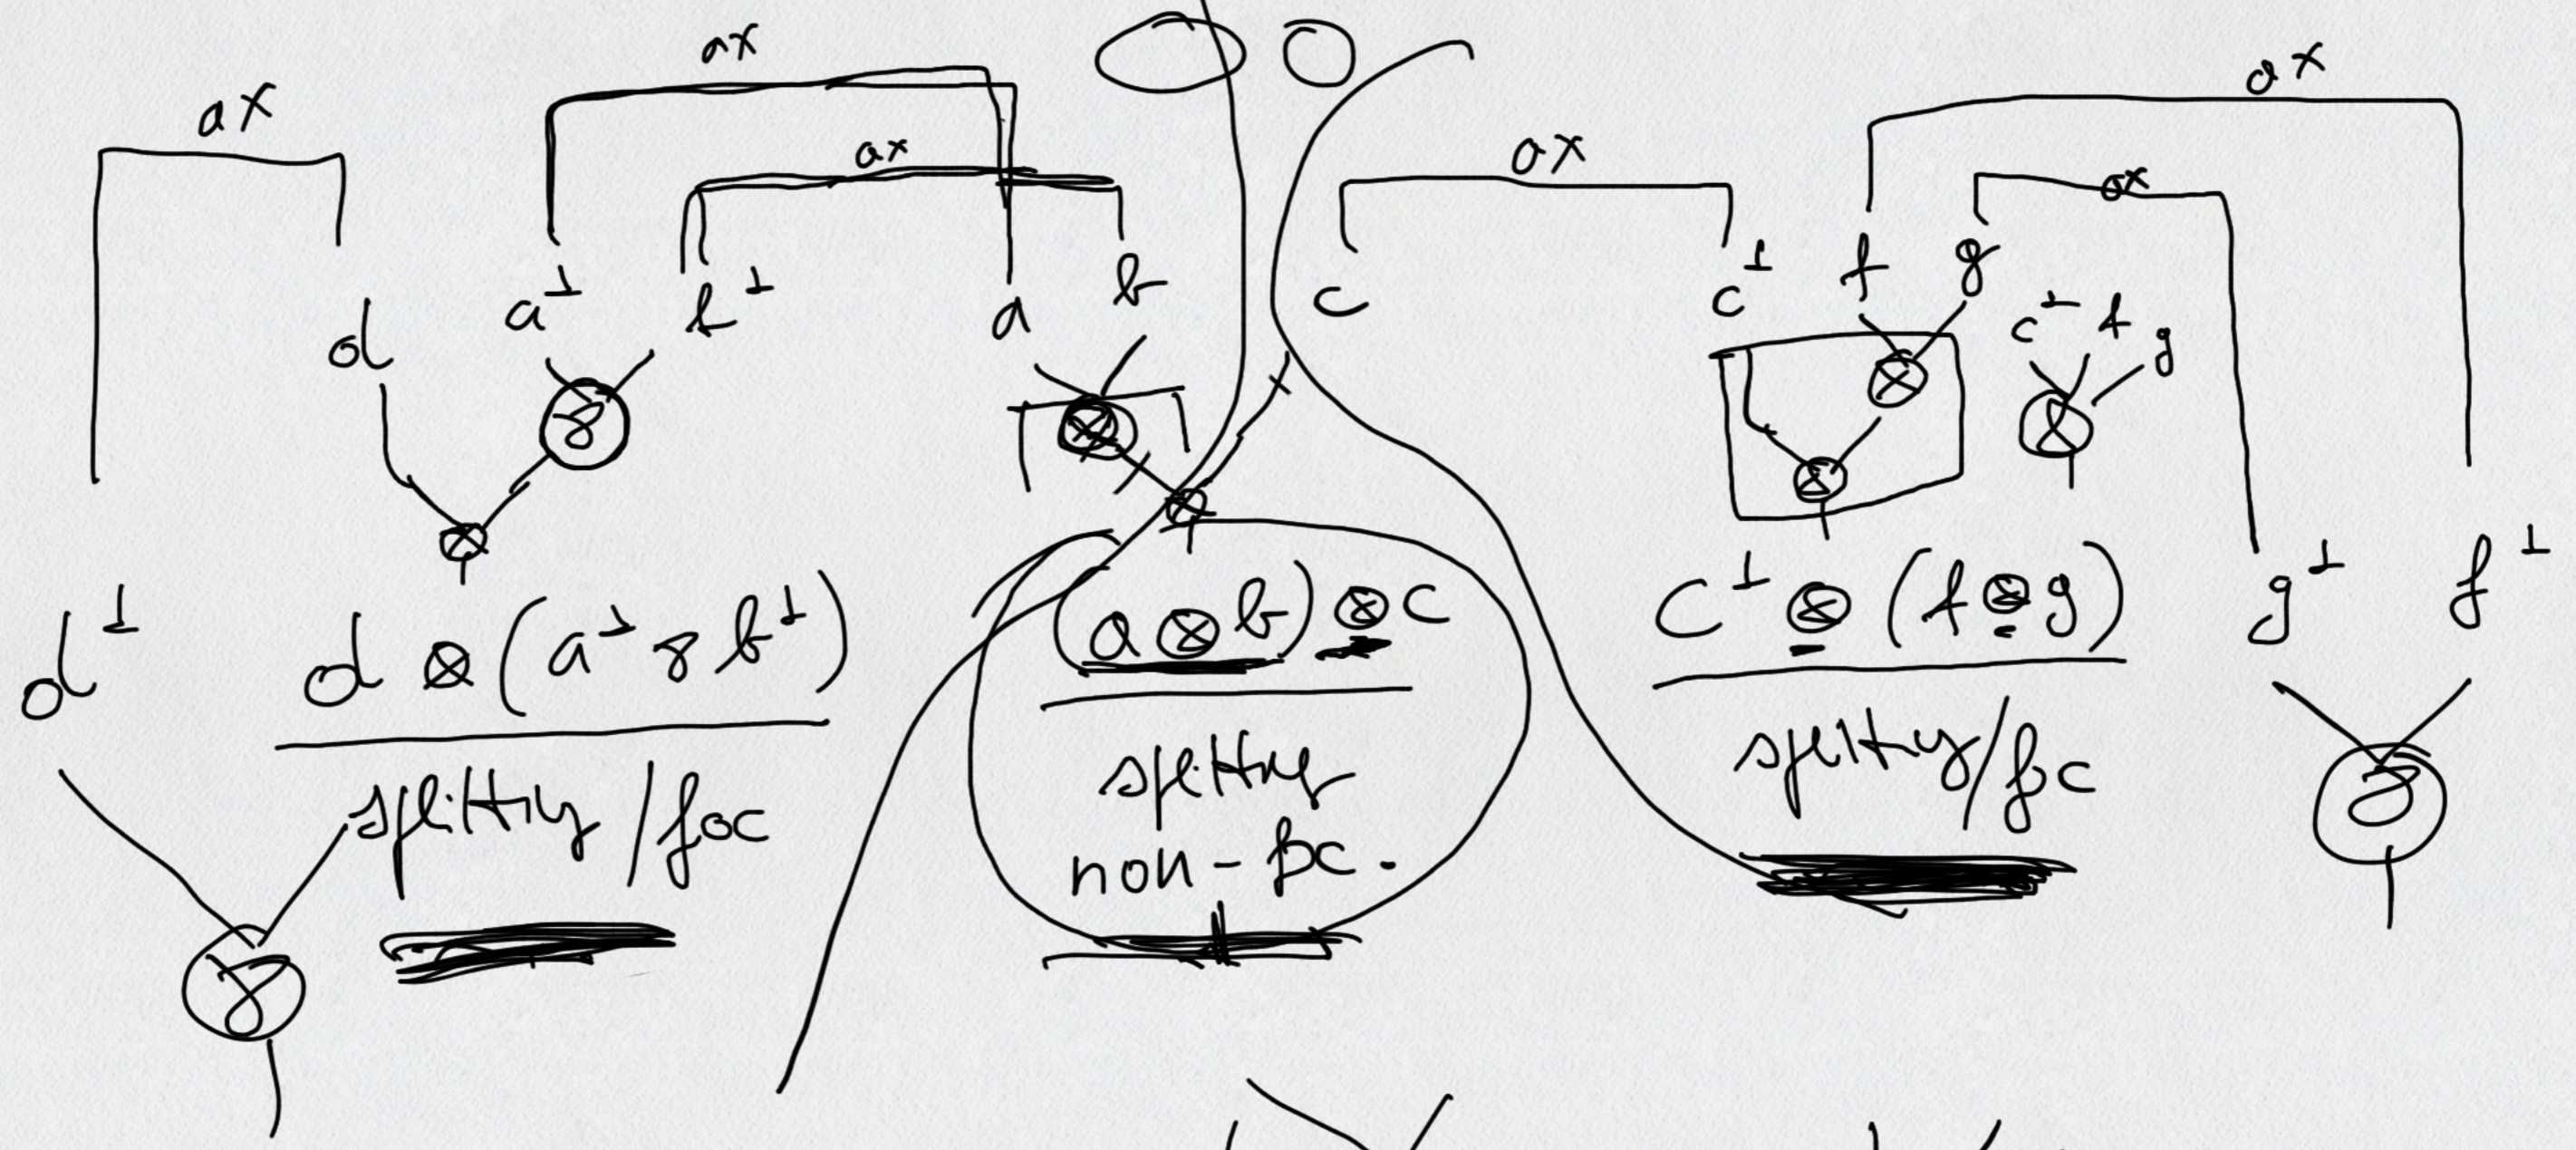 ax ax ax ax ax ax
d a⊥ b⊥ a b c c⊥ f g c⊥ f g
⅋ ⊗ ⊗ ⊗ ⅋
⊗ ⊗ ⊗
d⊥ d ⊗ (a⊥ ⅋ b⊥) (a ⊗ b) ⊗ c c⊥ ⊗ (f ⊗ g) g⊥ f⊥
splitting/foc splitting splitting/foc ⅋
non-foc.
⅋